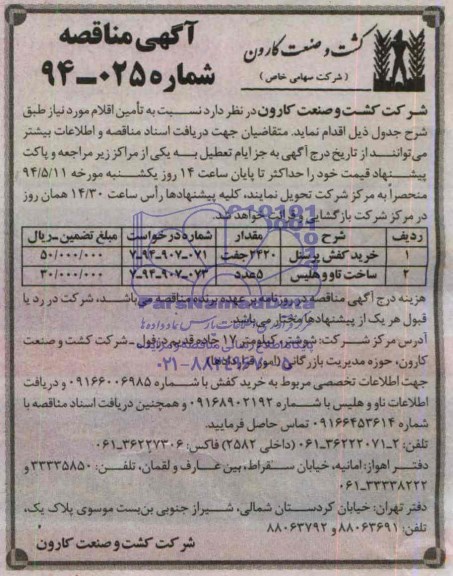 کشت و صنعت کارون
( شرکت سهامی خاص )
آگهی مناقصه
شماره ۰۲۵-۹۴
شرکت کشت و صنعت کارون در نظر دارد نسبت به تأمین اقلام مورد نیاز طبق
شرح جدول ذیل اقدام نماید. متقاضیان جهت دریافت اسناد مناقصه و اطلاعات بیشتر
می‌توانند از تاریخ درج آگهی به جز ایام تعطیل به یکی از مراکز زیر مراجعه و پاکت
پیشنهاد قیمت خود را حداکثر تا پایان ساعت ۱۴ روز یکشنبه مورخه ۹۴/۵/۱۱
منحصراً به مرکز شرکت تحویل نمایند، کلیه پیشنهادها رأس ساعت ۱۴/۳۰ همان روز
در مرکز شرکت بازگشایی و قرائت خواهد شد.
ردیف شرح مقدار شماره درخواست مبلغ تضمین-ریال
۱ خرید کفش پرسنل ۲۴۲۰جفت ۷-۹۴-۹۰۷-۰۷۱ ۵۰/۰۰۰/۰۰۰
۲ ساخت تاو و هلیس ۵عدد ۷-۹۴-۹۰۷-۰۷۳ ۳۰/۰۰۰/۰۰۰
هزینه درج آگهی مناقصه در روزنامه بر عهده برنده مناقصه می‌باشد، شرکت در رد یا
قبول هر یک از پیشنهادها مختار می‌باشد.
آدرس مرکز شرکت: شوشتر، کیلومتر ۱۷ جاده قدیم دزفول - شرکت کشت و صنعت
کارون، حوزه مدیریت بازرگانی (امور قراردادها)
جهت اطلاعات تخصصی مربوط به خرید کفش با شماره ۰۹۱۶۶۰۰۶۹۸۵ و دریافت
اطلاعات ناو و هلیس با شماره ۰۹۱۶۸۹۰۲۱۹۲ و همچنین دریافت اسناد مناقصه با
شماره ۰۹۱۶۶۴۵۳۶۱۴ تماس حاصل فرمایید.
تلفن: ۲-۳۶۲۲۲۰۷۱-۰۶۱ (داخلی ۲۵۸۲) فاکس: ۳۶۲۲۷۳۰۶-۰۶۱
دفتر اهواز: امانیه، خیابان سقراط، بین عارف و لقمان، تلفن: ۳۳۳۳۵۸۵۰ و
۳۳۳۳۸۲۲۲-۰۶۱
دفتر تهران: خیابان کردستان شمالی، شیراز جنوبی بن‌بست موسوی پلاک یک،
تلفن: ۸۸۰۶۳۶۹۱ و ۸۸۰۶۳۷۹۲
شرکت کشت و صنعت کارون